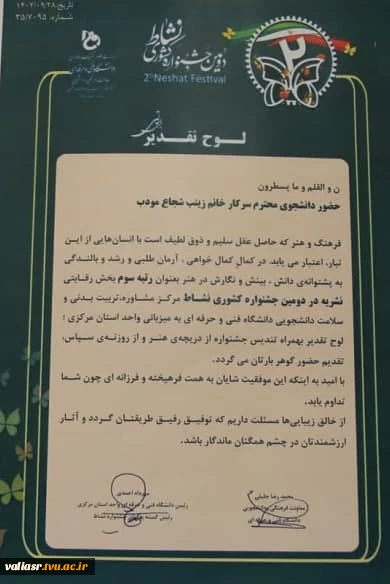 تاریخ: ۱۴۰۲/۰۹/۲۸
شماره: ۳۵/۷۰۹۵
دومین جشنواره کشوری نشاط
2nd Neshat Festival
۲
لوح تقدیر
ن و القلم و ما یسطرون
حضور دانشجوی محترم سرکار خانم زینب شجاع مودب
فرهنگ و هنر که حاصل عقل سلیم و ذوق لطیف است با انسان‌هایی از این
تبار، اعتبار می یابد. در کمالِ کمال خواهی ، آرمان طلبی و رشد و بالندگی
به پشتوانه‌ی دانش ، بینش و نگارش در هنر بعنوان رتبه سوم بخش رقابتی
نشریه در دومین جشنواره کشوری نشاط مرکز مشاوره،تربیت بدنی و
سلامت دانشجویی دانشگاه فنی و حرفه ای به میزبانی واحد استان مرکزی ؛
لوح تقدیر بهمراه تندیس جشنواره از دریچه‌ی هنر و از روزنه‌ی سپاس،
تقدیم حضور گوهر بارتان می گردد.
با امید به اینکه این موفقیت شایان به همت فرهیخته و فرزانه ای چون شما
تداوم یابد.
از خالق زیبایی‌ها مسئلت داریم که توفیق رفیق طریقتان گردد و آثار
ارزشمندتان در چشم همگنان ماندگار باشد.
محمد رضا جلیلی
معاونت فرهنگی دانشجویی
دانشگاه فنی و حرفه ای
مهرداد احمدی
رئیس دانشگاه فنی و حرفه ای واحد استان مرکزی
رئیس کمیته جشنواره نشاط
valiasr.tvu.ac.ir